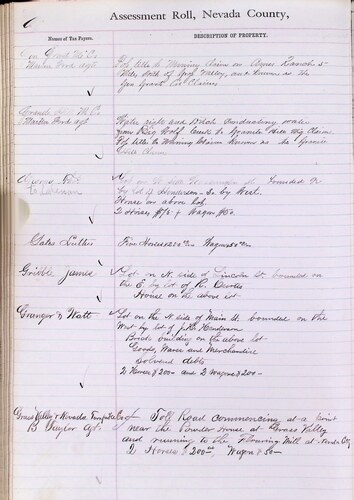 6
Assessment Roll, Nevada County,
Names of Tax Payers.
DESCRIPTION OF PROPERTY.
Gen Grant M. Co
Marten Ford agt
Pos title to Mining Claim on
Miles South of Grass Valley, and known as the
Gen Grant Co Claims
Granite Hill M. Co
Marten Ford agt
Water right and Ditch Conducting water
from Wolf Creek to Granite Hill Mg Claim
Pos title to Mining Claim known as the Granite
Hill Claim
Lot on N. side
by lot of Henderson So. by West.
House on above lot
2 Horses Wagon
Gates Luther
Five Horses 250 Wagon
Gribble James
Lot on N. side of Lincoln St. bounded on
the E. by lot of
House on the above lot
Granger & Watt
Lot on the N. side of Main St. bounded on the
West by lot of J. M. Henderson
Brick building on the above lot
Goods, Wares and Merchandise
Solvent debts
2 Horses $200 and 2 Wagons $200
Grass Valley & Nevada Turnpike Co
B. Taylor Agt.
Toll Road commencing at a point
near the Powder House at Grass Valley
and running to the Flouring Mill at Nevada City
2 Horses $200 Wagon $50